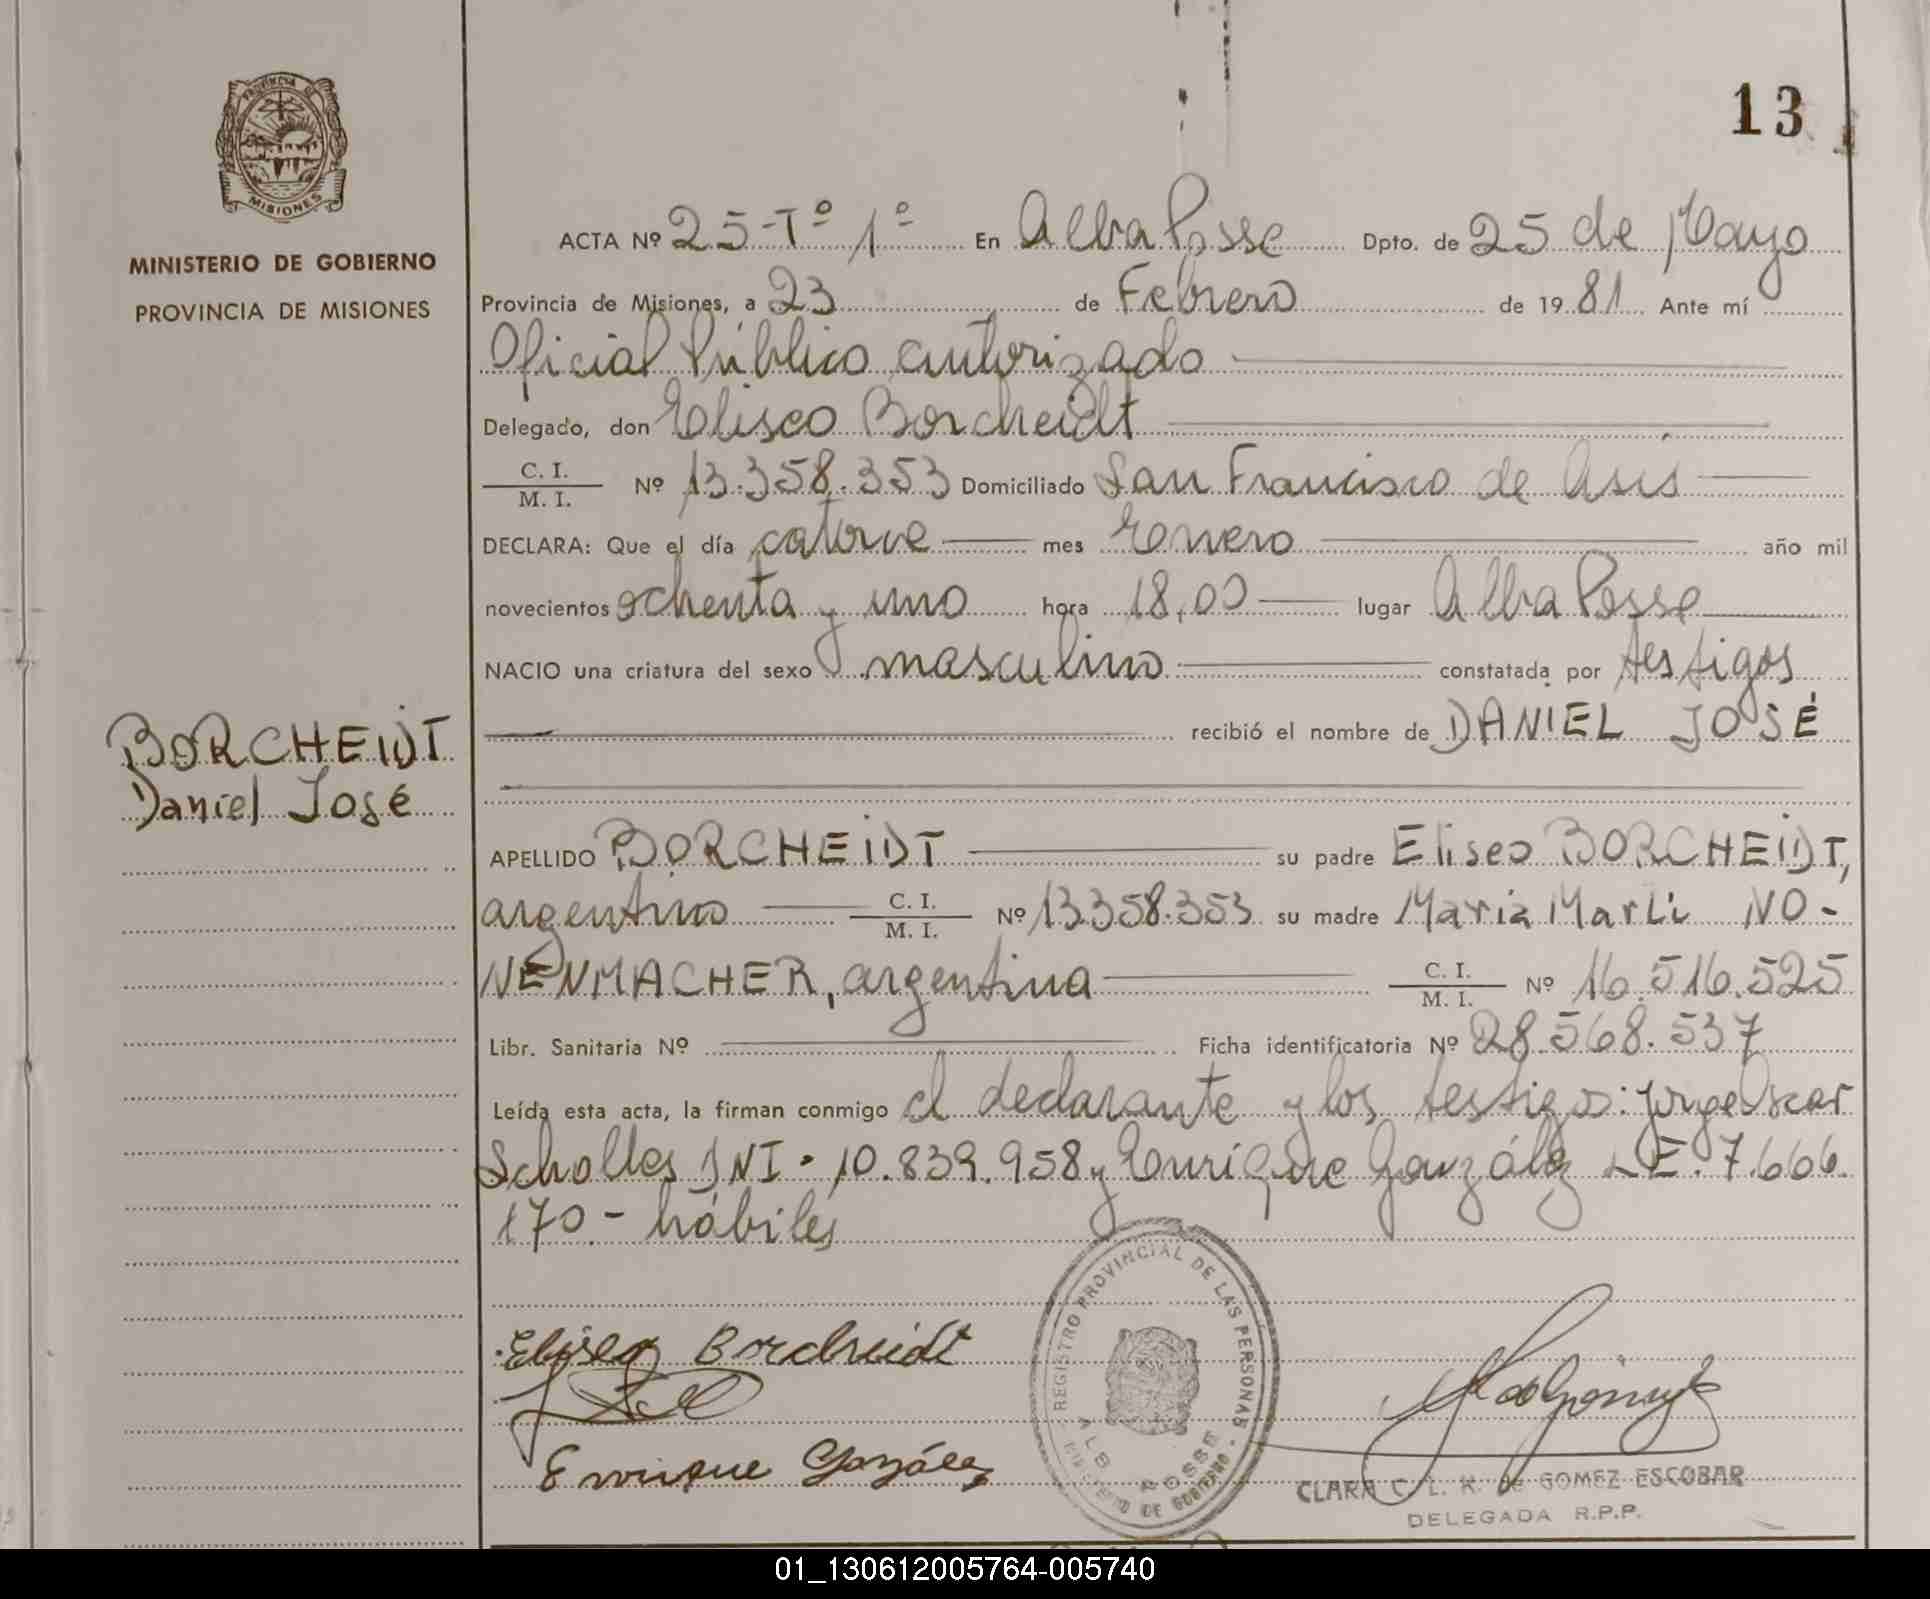 13
PROVINCIA DE
MISIONES
MINISTERIO DE GOBIERNO
PROVINCIA DE MISIONES
ACTA Nº 25-Tº 1º En Alba Posse Dpto. de 25 de Mayo
Provincia de Misiones, a 23 de Febrero de 1981 Ante mí
Oficial Público autorizado
Delegado, don Eliseo Borcheidt
C. I.
M. I. Nº 13.358.353 Domiciliado San Francisco de Asis
DECLARA: Que el día catorce mes Enero año mil
novecientos ochenta y uno hora 18,00 lugar Alba Posse
NACIO una criatura del sexo masculino constatada por testigos
recibió el nombre de DANIEL JOSÉ
BORCHEIDT
Daniel José
APELLIDO BORCHEIDT su padre Eliseo BORCHEIDT,
argentino C. I.
M. I. Nº 13.358.353 su madre Maria Marli NO-
NENMACHER, argentina C. I.
M. I. Nº 16.516.525
Libr. Sanitaria Nº Ficha identificatoria Nº 28.568.537
Leída esta acta, la firman conmigo el declarante y los testigos: Jorge Oscar
Scholles DNI. 10.839.958 y Enrique González L.E. 7.666.
170.- hábiles
Eliseo Borcheidt
Enrique González
REGISTRO PROVINCIAL DE LAS PERSONAS
ALB POSSE
MINISTERIO DE GOBIERNO
CLARA C. L. K. de GOMEZ ESCOBAR
DELEGADA R.P.P.
01_130612005764-005740